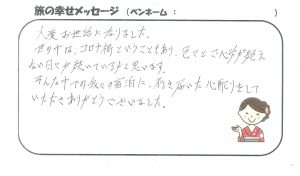 旅の幸せメッセージ (ペンネーム： )
大変お世話になりました。
世の中は、コロナ禍ということもあり、色々とご心労が絶え
ない日々が続いていますと思います。
そんな中での我々の宿泊に、行き届いた心配りをして
いただきありがとうございました。